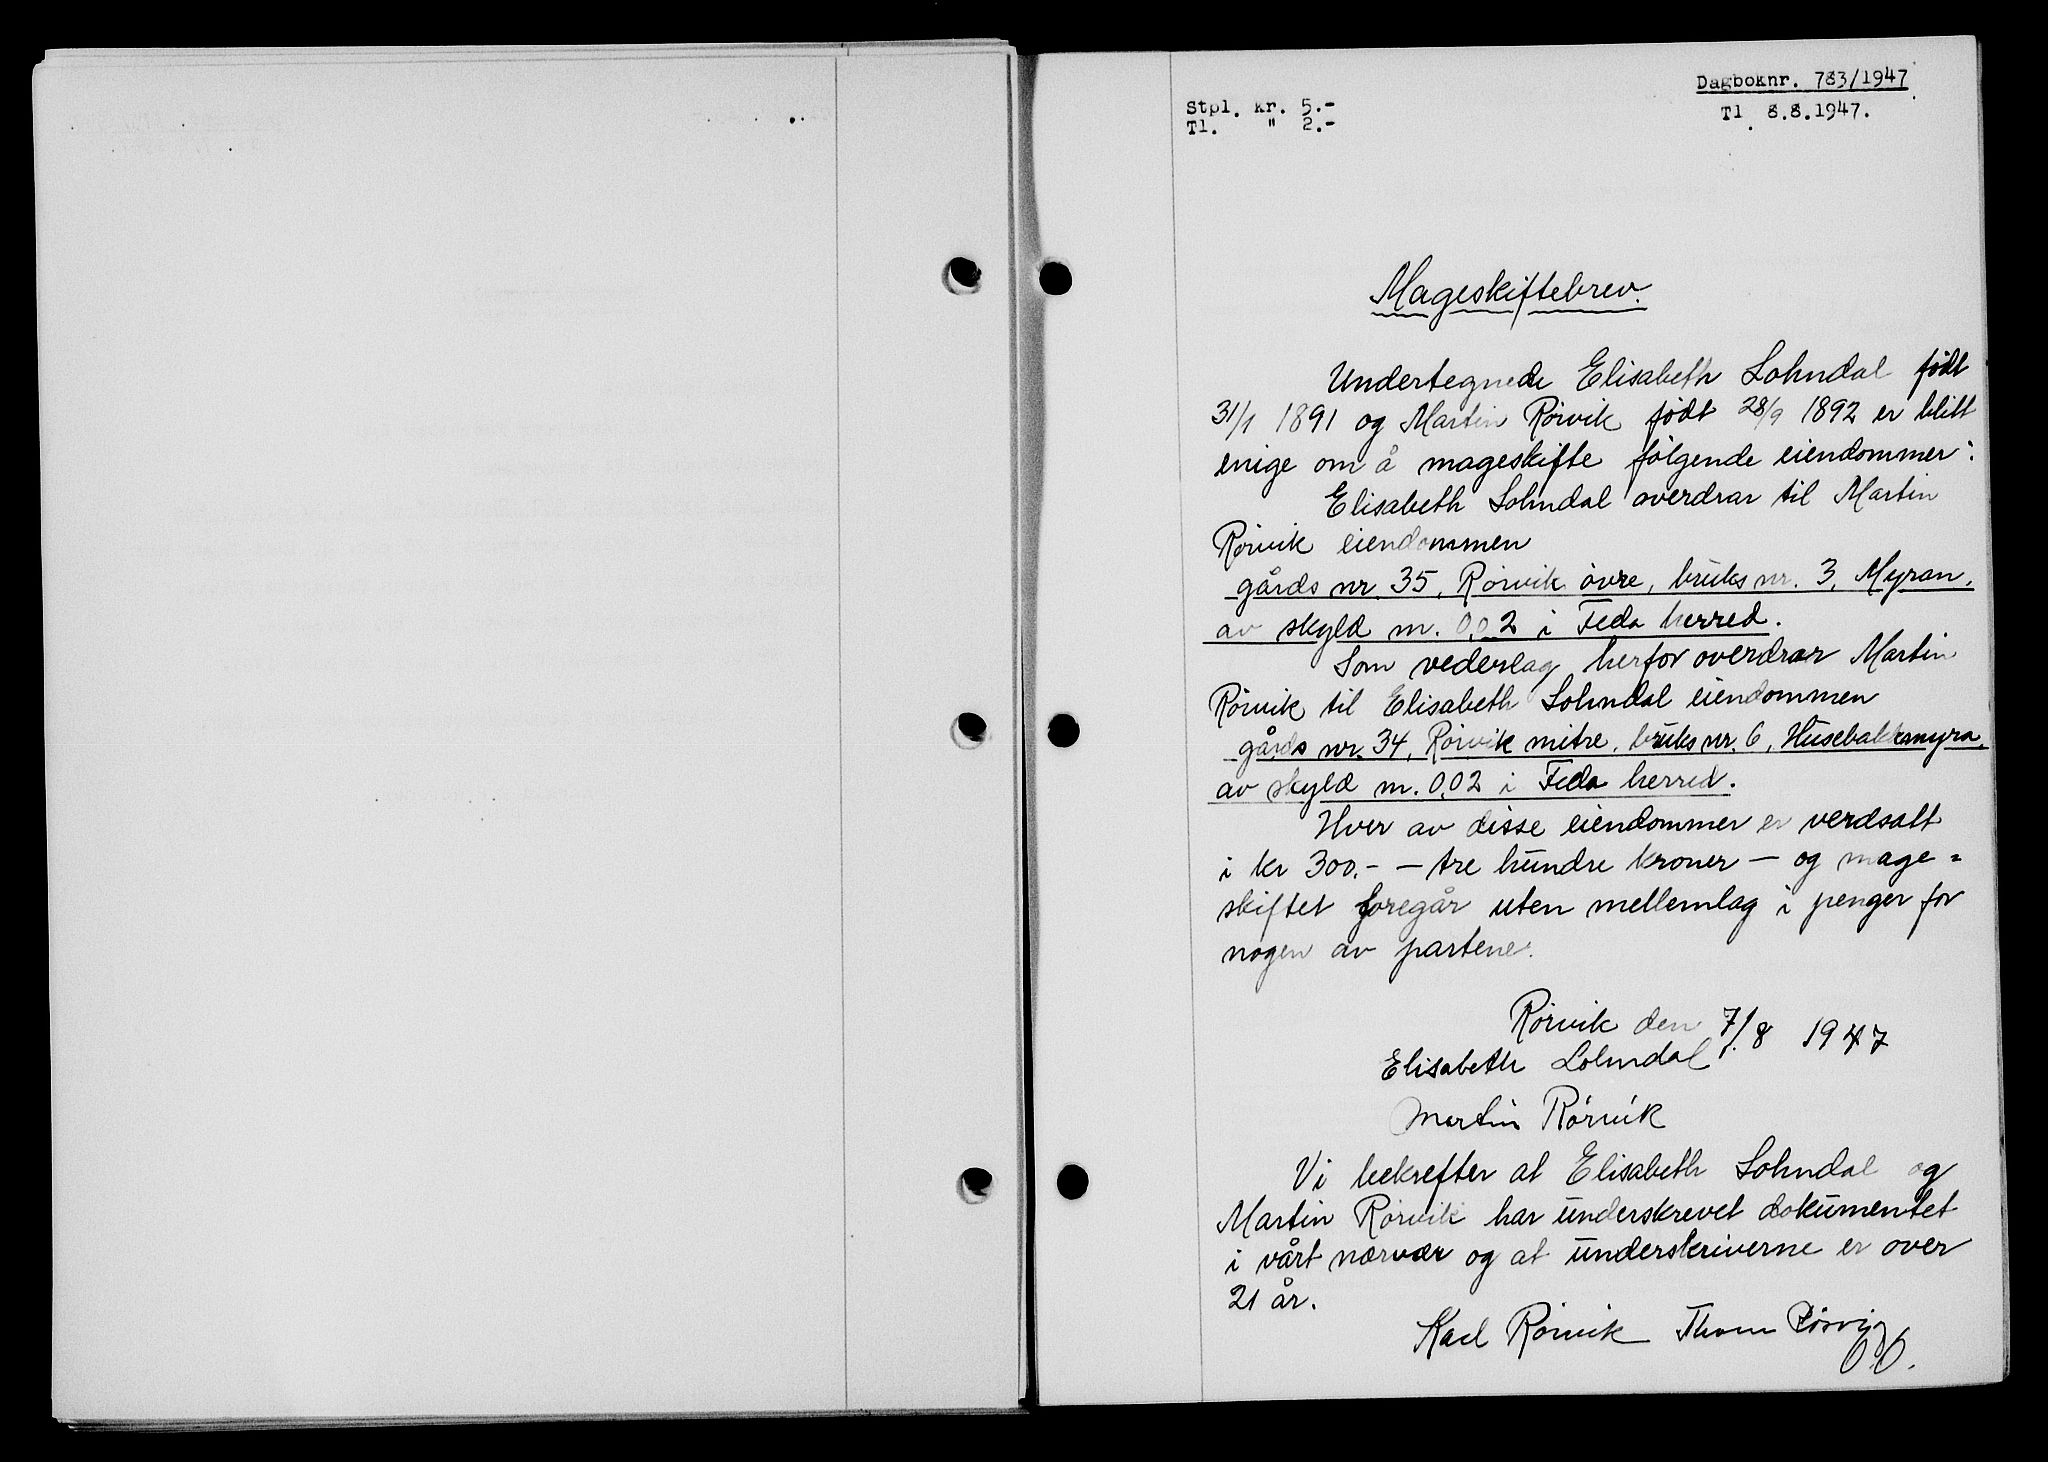 Dagboknr. 783/1947
Stpl. kr. 5.-
Tl 8.8.1947.
Tl. " 2.-
Mageskiftebrev.
Undertegnede Elisabeth Lohndal født
31/1 1891 og Martin Rørvik født 28/9 1892 er blitt
enige om å mageskifte følgende eiendommer:
Elisabeth Lohndal overdrar til Martin
Rørvik eiendommen
gårds nr. 35, Rørvik øvre, bruks nr. 3, Myran,
av skyld m. 0,02 i Feda herred.
Som vederlag herfor overdrar Martin
Rørvik til Elisabeth Lohndal eiendommen
gårds nr. 34, Rørvik mitre, bruks nr. 6, Husebakkmyra,
av skyld m. 0,02 i Feda herred.
Hver av disse eiendommer er verdsatt
i kr 300.- - tre hundre kroner - og mage=
skiftet foregår uten mellemlag i penger for
nogen av partene.
Rørvik den 7/8 1947
Elisabeth Lohndal
Martin Rørvik
Vi bekrefter at Elisabeth Lohndal og
Martin Rørvik har underskrevet dokumentet
i vårt nærvær og at underskriverne er over
21 år.
Karl Rørvik Thom Rørvig